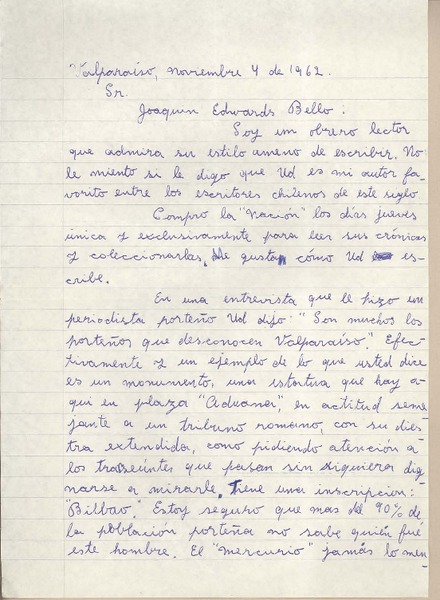 Valparaíso, noviembre 4 de 1962.
Sr.
Joaquin Edwards Bello:
Soy un obrero lector
que admira su estilo ameno de escribir. No
le miento si le digo que Ud es mi autor fa-
vorito entre los escritores chilenos de este siglo
Compro la "Nación" los días jueves
única y exclusivamente para leer sus crónicas
y coleccionarlas. Me gustan cómo Ud es-
cribe.
En una entrevista que le hizo un
periodista porteño Ud dijo: "Son muchos los
porteños que desconocen Valparaíso." Efec-
tivamente y un ejemplo de lo que usted dice
es un monumento, una estatua que hay a-
qui en plaza "Aduana", en actitud seme
jante a un tribuno romano, con su dies-
tra extendida, como pidiendo atención a
los transeúntes que pasan sin siquiera dig
narse a mirarle. Tiene una inscripcion:
"Bilbao." Estoy seguro que mas del 90% de
la población porteña no sabe quién fué
este hombre. El "Mercurio" jamás lo men